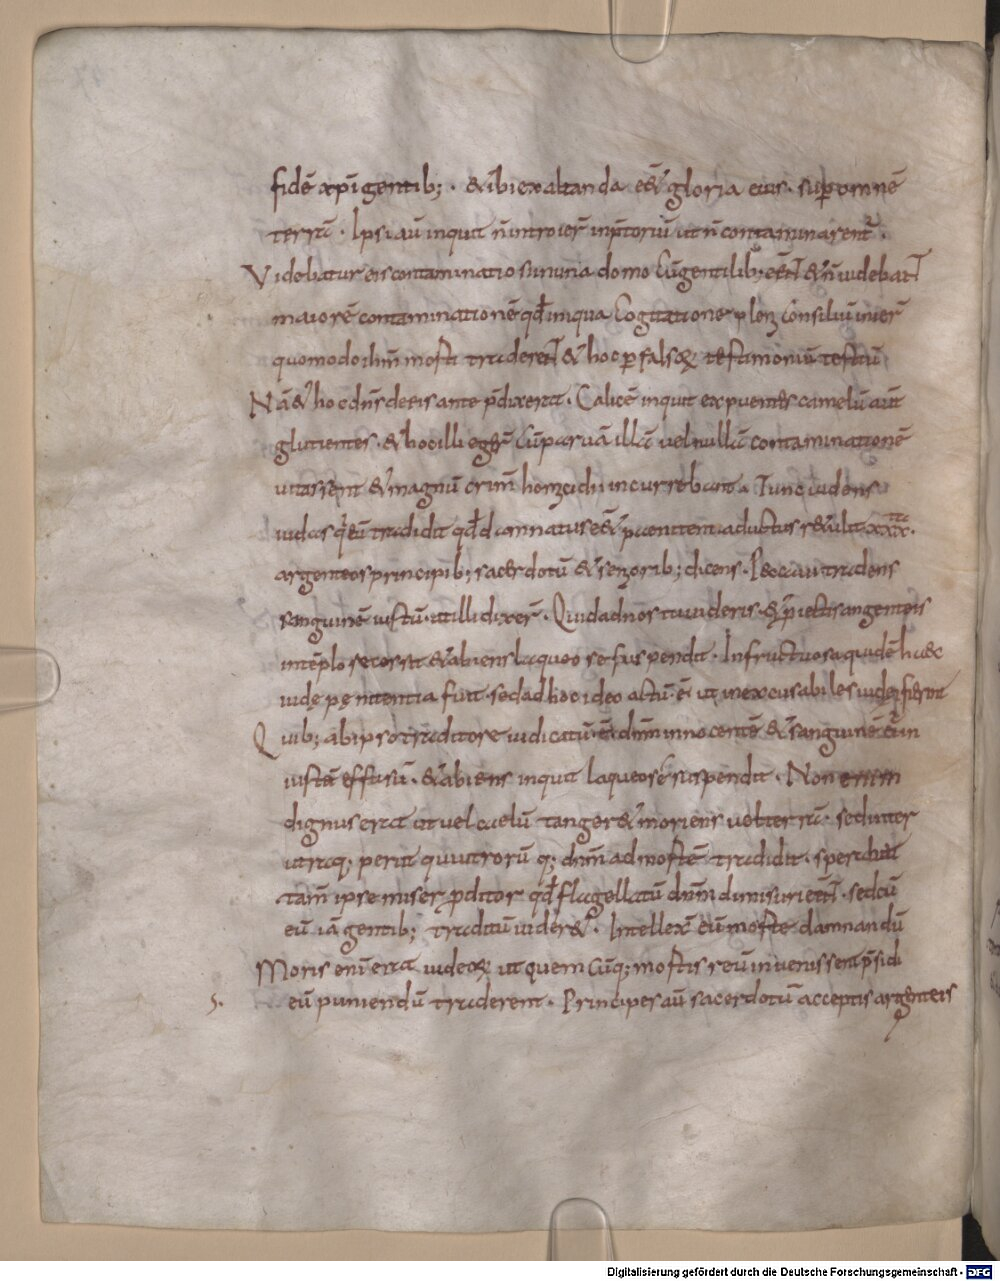 fidē xp̄i gentib; · & ibi exaltanda eēt gloria eius · sup omnē
terrā · Ipsi aū inquit n̄ introier̄ inp̄toriū ut n̄ contaminarent̄ ·
Videbatur eis contaminatio si in una domo cū gentilib; eēnt & n̄ uidebant
maiorē contaminationē qđ iniqua cogitatione plen consiliū inier̄
quomodo dn̄m morti traderent & hoc p falsoꝝ testimoniū testiū
Nā & hoc dn̄s de his ante p̄dixerat · Calicē inquit camelū aūt
glutientes · & hoc illi eger̄ cū paruā illā uel nullā contaminationē
uitassent & magnū crim̄ homicidii incurrebant · Tunc uidens
iudas q̇ eū tradidit qđ damnatus eēt paenitentia ductus retulit xxx
argenteos principib; sacerdotū & senioib; dicens · Peccaui tradens
sanguinē iustū · at illi dixer̄ · Quid ad nos tu uideris · & p̄iectis argenteis
in tēplo secessit & abiens laqueo se suspendit · Infructuosa quidē haec
iudę pęnitentia fuit · sed ad hoc ideo actū ē ut inexcusabiles iudei fierent
Quib; ab ipso traditore iudicatū ē dn̄m innocentē & sanguinē eius in
iustē effusū · & abiens inquit laqueo se suspendit · Non enim
dignus erat ut uel caelū tanger& moriens uel terrā · sed inter
utraq; perit qui utrorū q; dn̄m ad mortē tradidit · sperabat
tam̄ ipse miser p̄ditor qđ flagellatū dn̄m dimisuri eēnt · sed cū
eū iā gentib; traditū uider& · Intellex̄ eū morte damnandū
Moris eni erat iudeoꝝ ut quem cūq; mortis reū inuenissent p̄sidi
eū puniendū traderent · Principes aū sacerdotū acceptis argenteis
Digitalisierung gefördert durch die Deutsche Forschungsgemeinschaft - DFG